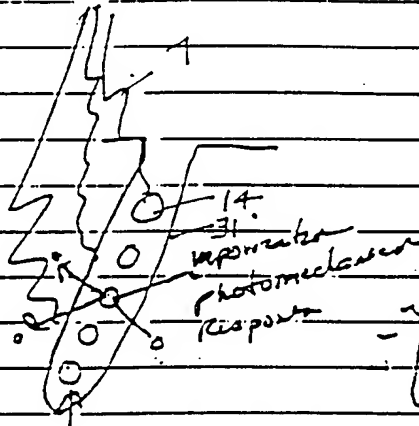 1
14
31
vaporization
photomechanical
Response